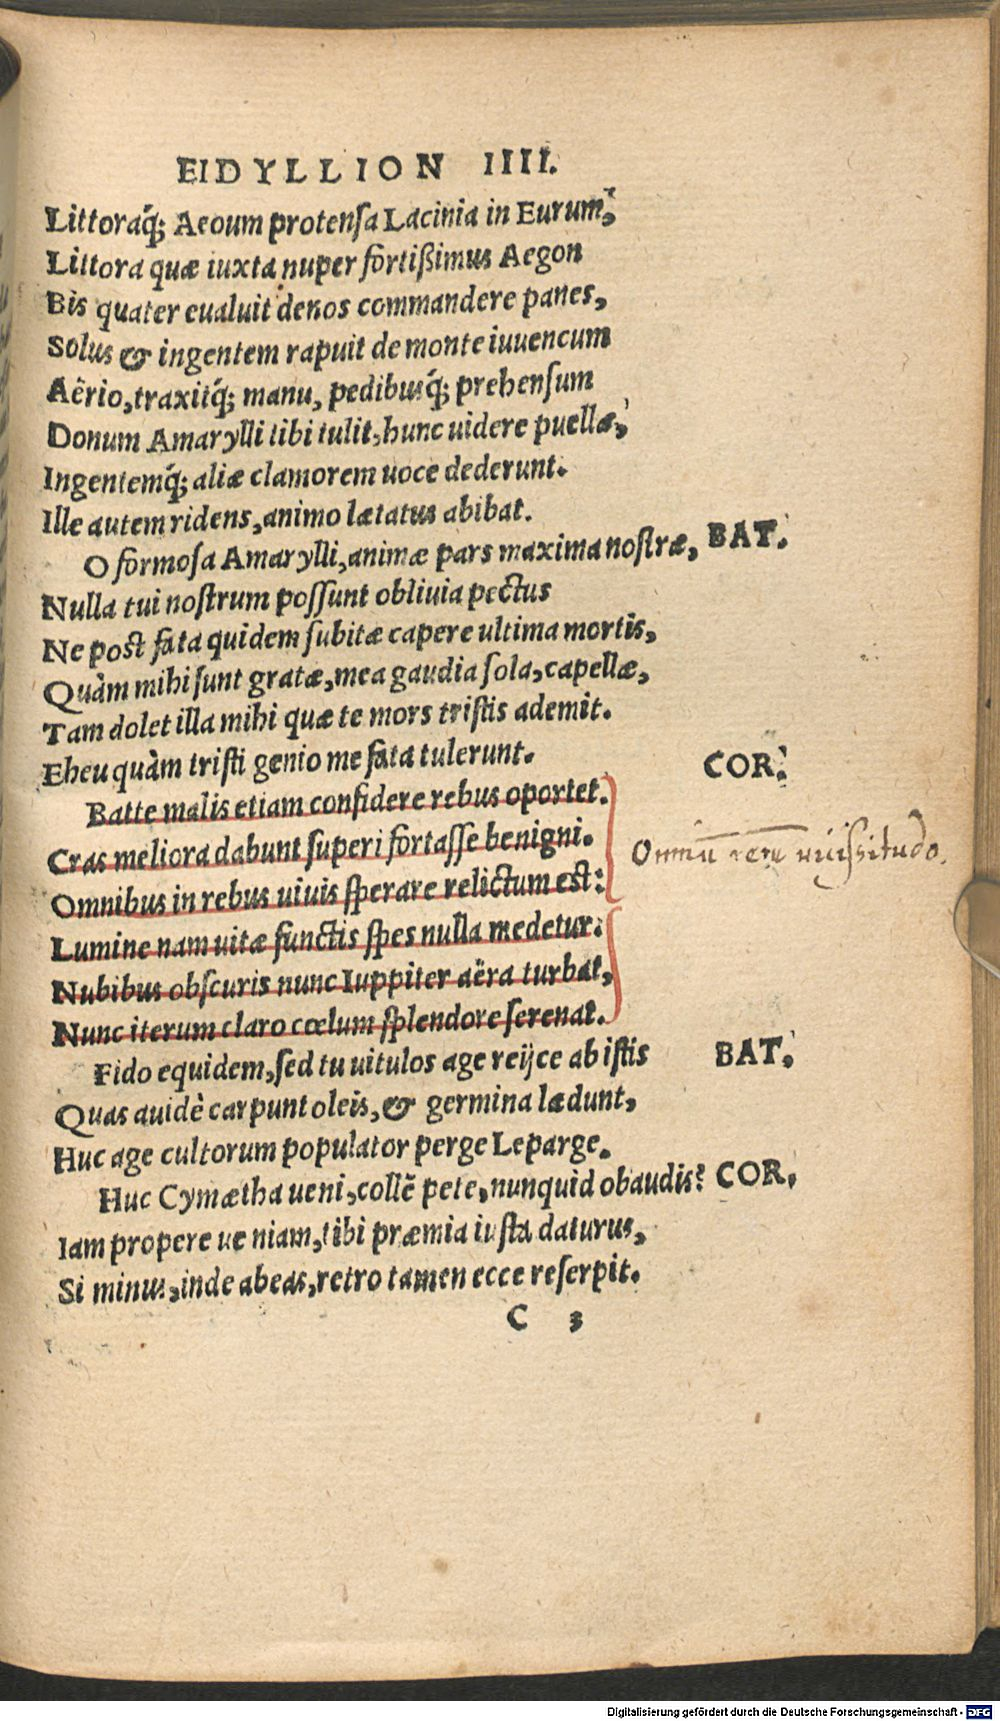 EIDYLLION IIII.
Littoraq́; Aeoum protensa Lacinia in Eurum,
Littora quæ iuxta nuper fortißimus Aegon
Bis quater eualuit denos commandere panes,
Solus & ingentem rapuit de monte iuuencum
Aërio, traxitq́; manu, pedibusq́; prehensum
Donum Amarylli tibi tulit, hunc uidere puellæ,
Ingentemq́; aliæ clamorem uoce dederunt.
Ille autem ridens, animo lætatus abibat.
O formosa Amarylli, animæ pars maxima nostræ, BAT.
Nulla tui nostrum possunt obliuia pectus
Ne post fata quidem subitæ capere ultima mortis,
Quàm mihi sunt gratæ, mea gaudia sola, capellæ,
Tam dolet illa mihi quæ te mors tristis ademit.
Eheu quàm tristi genio me fata tulerunt.
Batte malis etiam confidere rebus oportet. COR.
Cras meliora dabunt superi fortasse benigni.
Omniū rerū uicissitudo.
Omnibus in rebus uiuis sperare relictum est:
Lumine nam uitæ functis spes nulla medetur:
Nubibus obscuris nunc Iuppiter aëra turbat,
Nunc iterum claro cœlum splendore serenat.
Fido equidem, sed tu uitulos age reijce ab istis BAT.
Quas auidè carpunt oleis, & germina lædunt,
Huc age cultorum populator perge Leparge.
Huc Cymætha ueni, collē pete, nunquid obaudis? COR.
Iam propere ueniam, tibi præmia iusta daturus,
Si minus, inde abeas, retro tamen ecce reserpit.
C 3
Digitalisierung gefördert durch die Deutsche Forschungsgemeinschaft - DFG